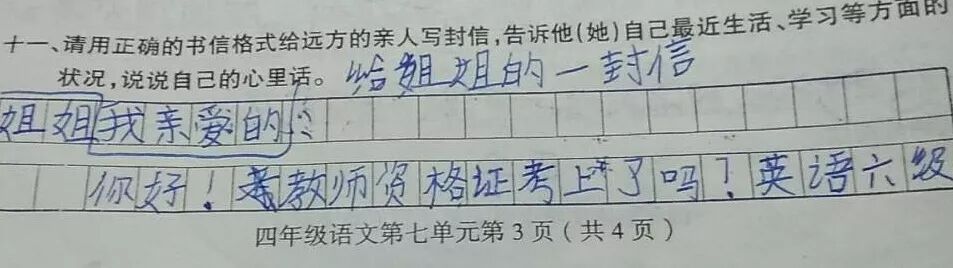 十一、请用正确的书信格式给远方的亲人写封信,告诉他(她)自己最近生活、学习等方面的
状况,说说自己的心里话。给姐姐的一封信
姐姐我亲爱的:
你好!教师资格证考上了吗?英语六级
四年级语文第七单元第3页(共4页)